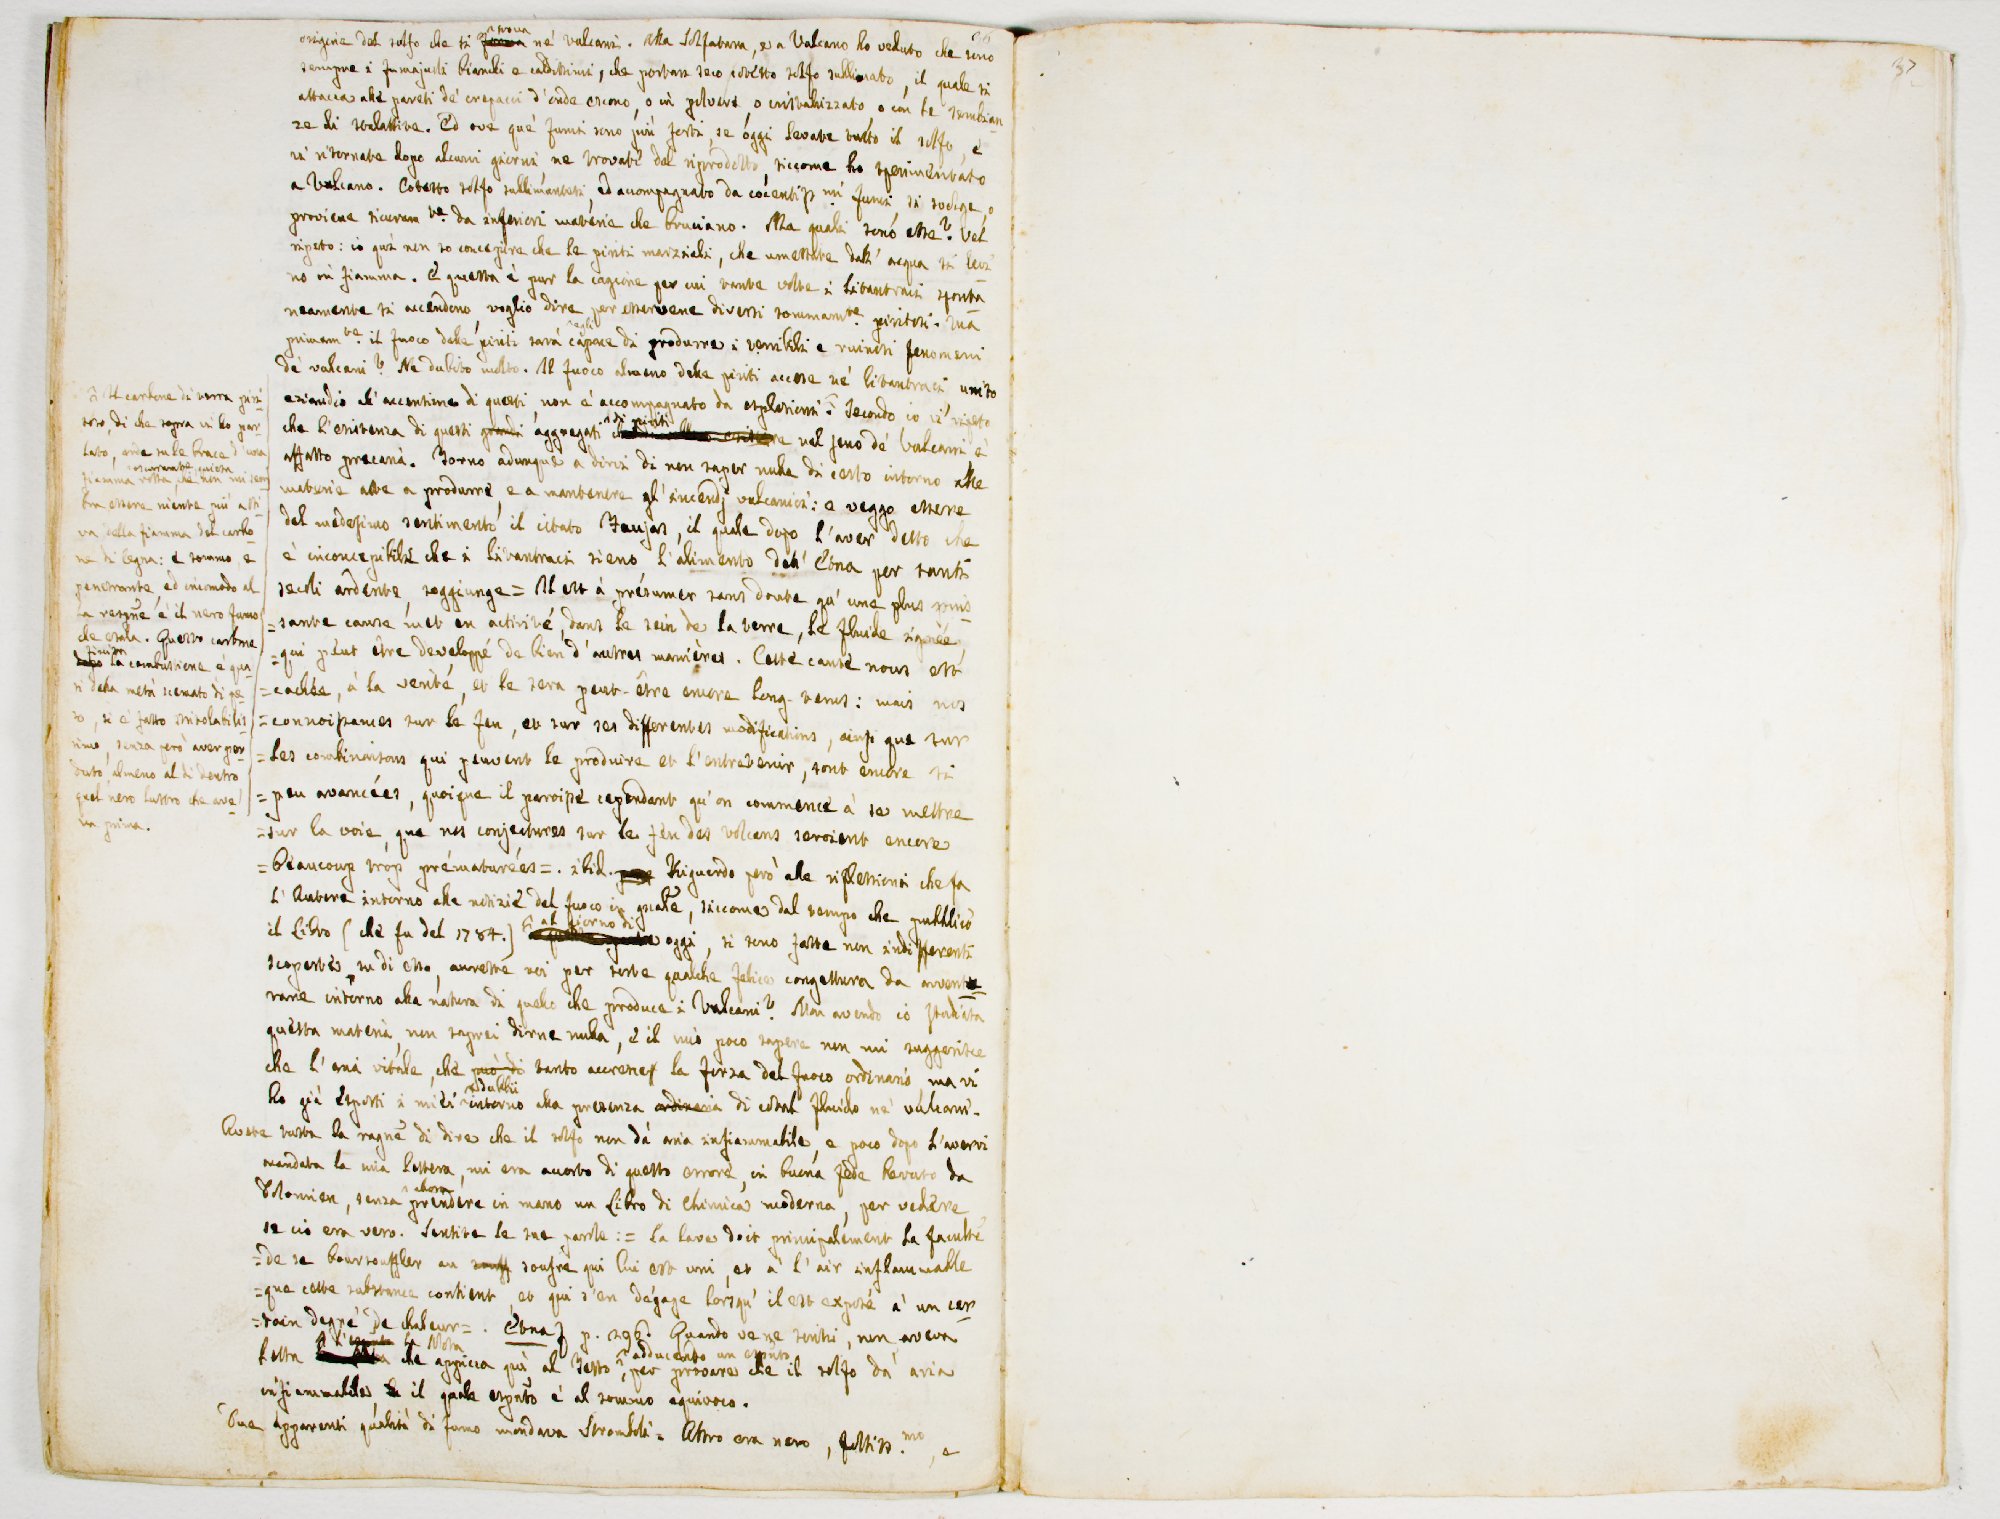 origine del solfo che si trova ne' vulcani. Alla Solfatara, e a Vulcano ho veduto che sono
sempre i fumajuoli bianchi e caldissimi, che portan seco cotesto solfo sullimato, il quale si
attacca alle pareti de' crepacci d'onde escono, o in polvere, o cristallizzato, o con le sembian
ze di stalattite. Ed ove que' fumi sono più forti se oggi levate tutto il solfo, e
vi ritornate dopo alcuni giorni ne trovate del riprodotto, siccome ho sperimentato
a Vulcano. Cotesto solfo sullimantesi, ed accompagnato da cocentiss mi fumi si svolge, o
proviene sicuram te da inferiori materie che bruciano. Ma quali sono esse? Vel
ripeto: io qui non so concepire che le piriti marziali, che umettate dall' acqua si levi
no in fiamma. E questa è pur la cagione per cui tante volte i litantraci sponta
neamente si accendono, voglio dire per esservene diversi sommam te piritosi. Ma
primam te il fuoco delle piriti sarà egli capace di produrre i terribili e ruinosi fenomeni
de' vulcani? Ne dubito molto. Il fuoco almeno delle piriti accese ne' litantraci unito
eziandio all' accensione di questi non è accompagnato da esplosioni. Secondo io vi ripeto
che l'esistenza di questi grandi aggregati di piriti nel seno de' Vulcani è
affatto precaria. Torno adunque a dirvi di non saper nulla di certo intorno alle
materie atte a produrre, e a mantenere gl' incendj vulcanici: e veggo essere
del medesimo sentimento il citato Faujas, il quale dopo l'aver detto che
è inconcepibile che i litantraci sieno l'alimento dell' Etna per tanti
secoli ardente, soggiunge = Il est à présumer sans doute qu' une plus puis
= sante cause met en activité, dans le sein de la terre, le fluide igneé,
= qui peut être developpé de bien d'autres manières. Cette cause nous est
= cachée, à la verité, et le sera peut-être encore long-tems: mais nos
= connoissances sur le feu, et sur ses differentes modifications, ainsi que sur
= les combinaisons qui peuvent le produire et l'entretenir, sont encore si
= peu avancées, quoique il paroisse cependant qu'on commence à se mettre
= sur la voie, que nos conjectures sur le feu des volcans seroient encore
= beaucoup trop prématurées =. ibid. Riguardo però alle riflessioni che fa
l' Autore intorno alle notizie del fuoco in gnãle, siccome dal tempo che pubblicò
il Libro (che fu del 1784.) al giorno di oggi, si sono fatte non indifferenti
scoperte su di esso, avreste voi per sorte qualche felice congettura da avventu
rare intorno alla natura di quello che produce i Vulcani? Non avendo io studiata
questa materia, non saprei dirne nulla, e il mio poco sapere non mi suggerisce
che l'aria vitale, che può di tanto accrescer la forza del fuoco ordinario, ma vi
ho già esposti i miei dubbii intorno alla presenza ordinaria di cotal fluido ne' vulcani.
Avete tutta la ragne di dire che il solfo non dà aria infiammabile, e poco dopo l'avervi
mandata la mia lettera, mi era accorto di questo errore, in buona fede bevuto da
Dolomieu, senza allora prendere in mano un Libro di Chimica moderna, per vedere
se ciò era vero. Sentite le sue parole: = La lave doit principalement la faculté
= de se boursouffler au souff soufre qui lui est uni, et à l' air inflammable
= que cette substance contient, et qui s'en dégage lorsqu' il est exposé à un cer
= tain degré de chaleur =. Etna p. 296. Quando ve ne scrissi, non aveva
letta la Nota che appicca qui al Testo, adducendo un espto, per provare che il solfo dà aria
infiammabile il quale espto è al sommo equivoco.
Due apparenti qualità di fumo mandava Stromboli = Altro era nero, foltiss.mo, e
Il carbone di terra piri
toso, di che sopra vi ho par
lato, arde su le brace d'una
fiamma
bra essere niente più atti
va della fiamma del carbo
ne di legna: e sommo, e
penetrante, ed incomodo al
la respne è il nero fumo
che esala. Questo carbone
finita la combustione è qua
si della metà scemato di pe
so, si è fatto stritolabilis
simo, senza però aver per
duto, almeno al di dentro
quel nero lustro che ave
va prima.
37